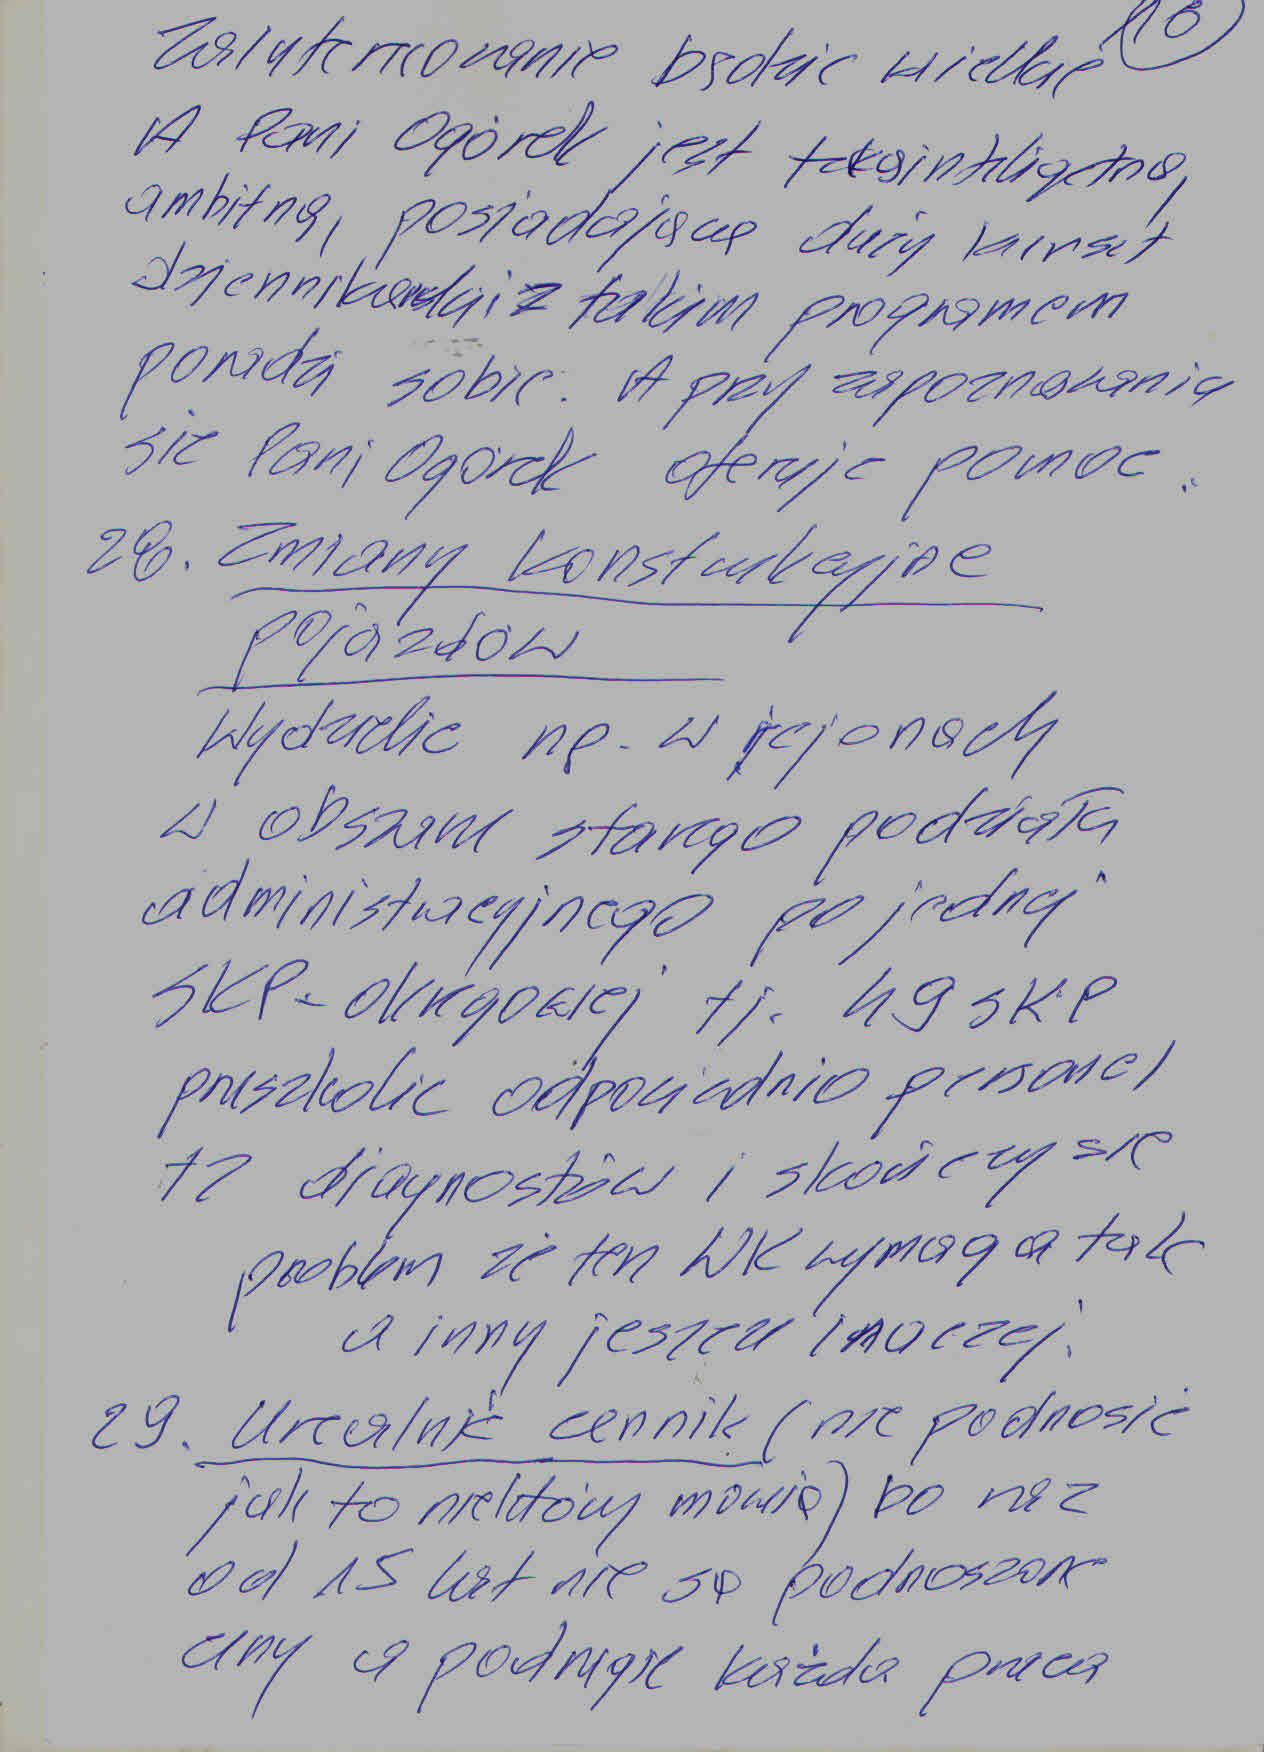 18
Zainteresowanie będzie wielkie
A Pani Ogórek jest taka inteligetna,
ambitna, posiadająca duży warsztat
dziennikarski z takim programem
poradzi sobie. A przy zapoznawaniu
się Pani Ogórek oferuje pomoc.
28. Zmiany konstrukcyjne
pojazdów
Wydzielić np. w rejonach
w obszarze starego podziału
administracyjnego po jednej
SKP-okręgowej tj. 49 SKP
przeszkolić odpowiednio personel
tz diagnostów i skończy się
problem że ten WK wymaga tak
a inny jeszcze inaczej.
29. Urealnić cennik (nie podnosić
jak to niektórzy mówią) bo raz
od 15 lat nie są podnoszone
ceny a podrugie każda praca